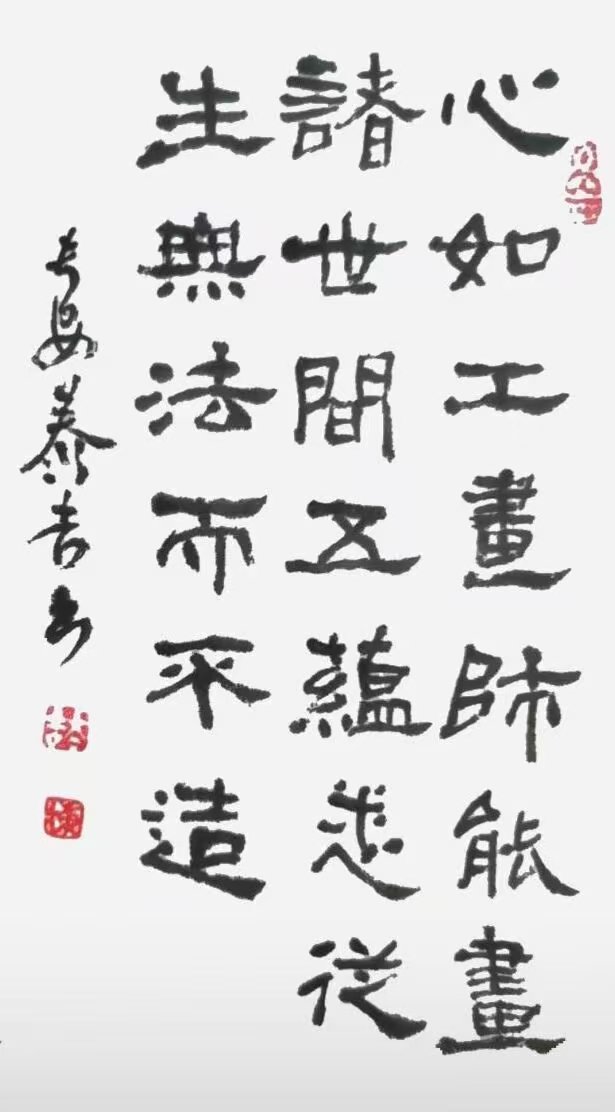 心如工畫師能畫
諸世間五蘊悉從
生無法而不造
長安泰吉書